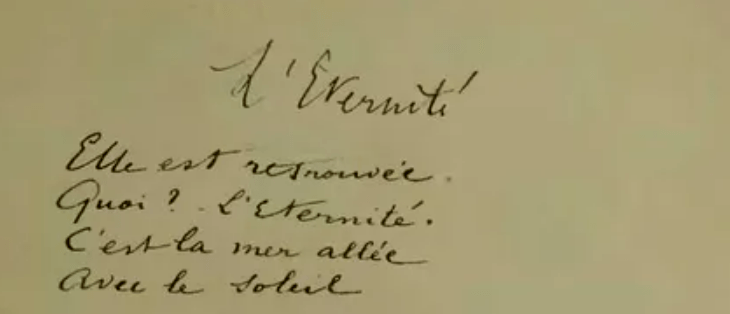 L'Eternité
Elle est retrouvée.
Quoi ? - L'Eternité.
C'est la mer allée
Avec le soleil